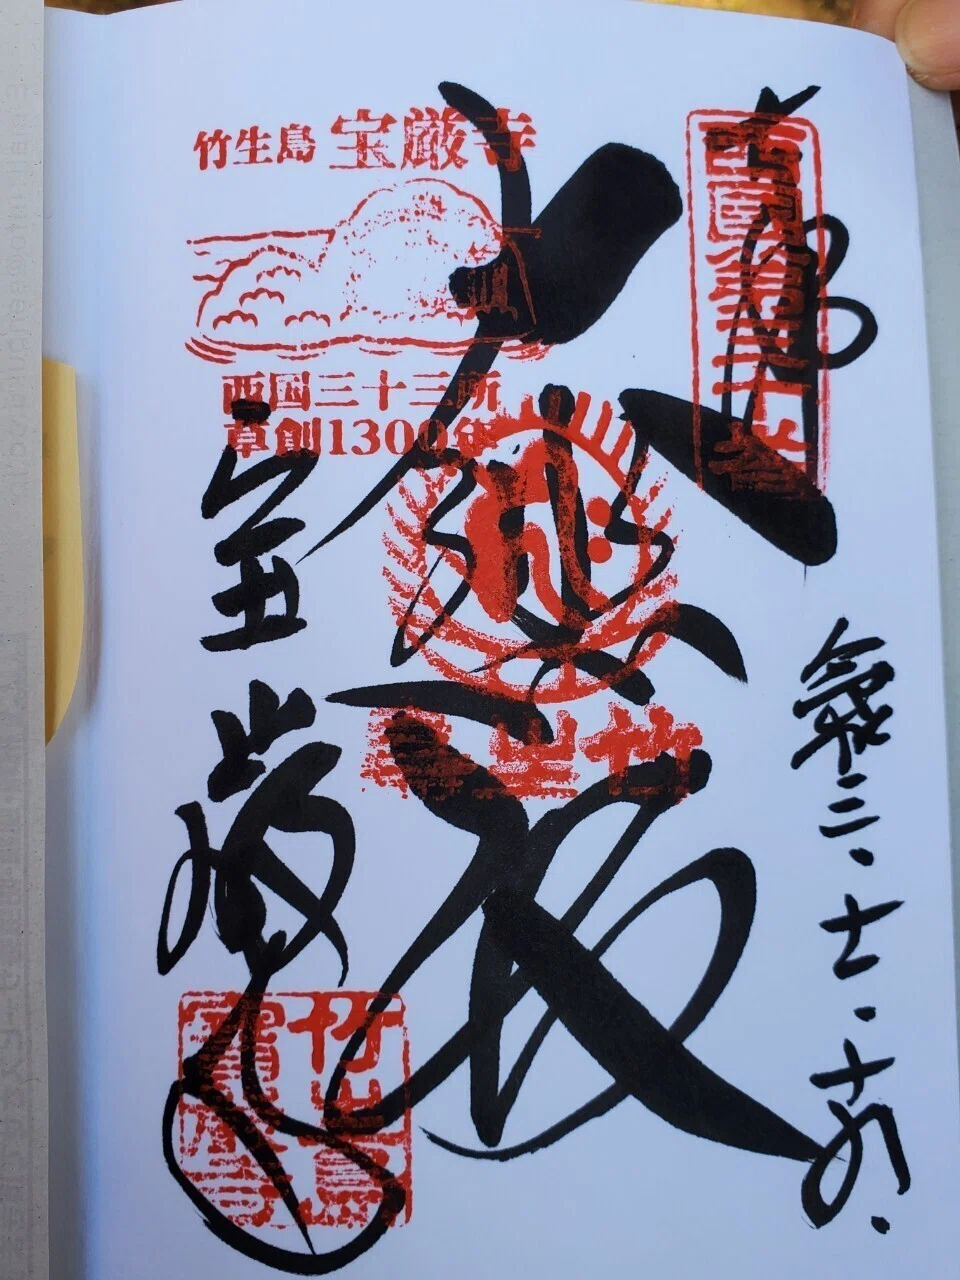 奉拝
西國第三十番
令和三・十一・
大悲殿
竹生島
竹生島 宝厳寺
西国三十三所
草創1300年
宝厳寺
竹生島
寶厳寺